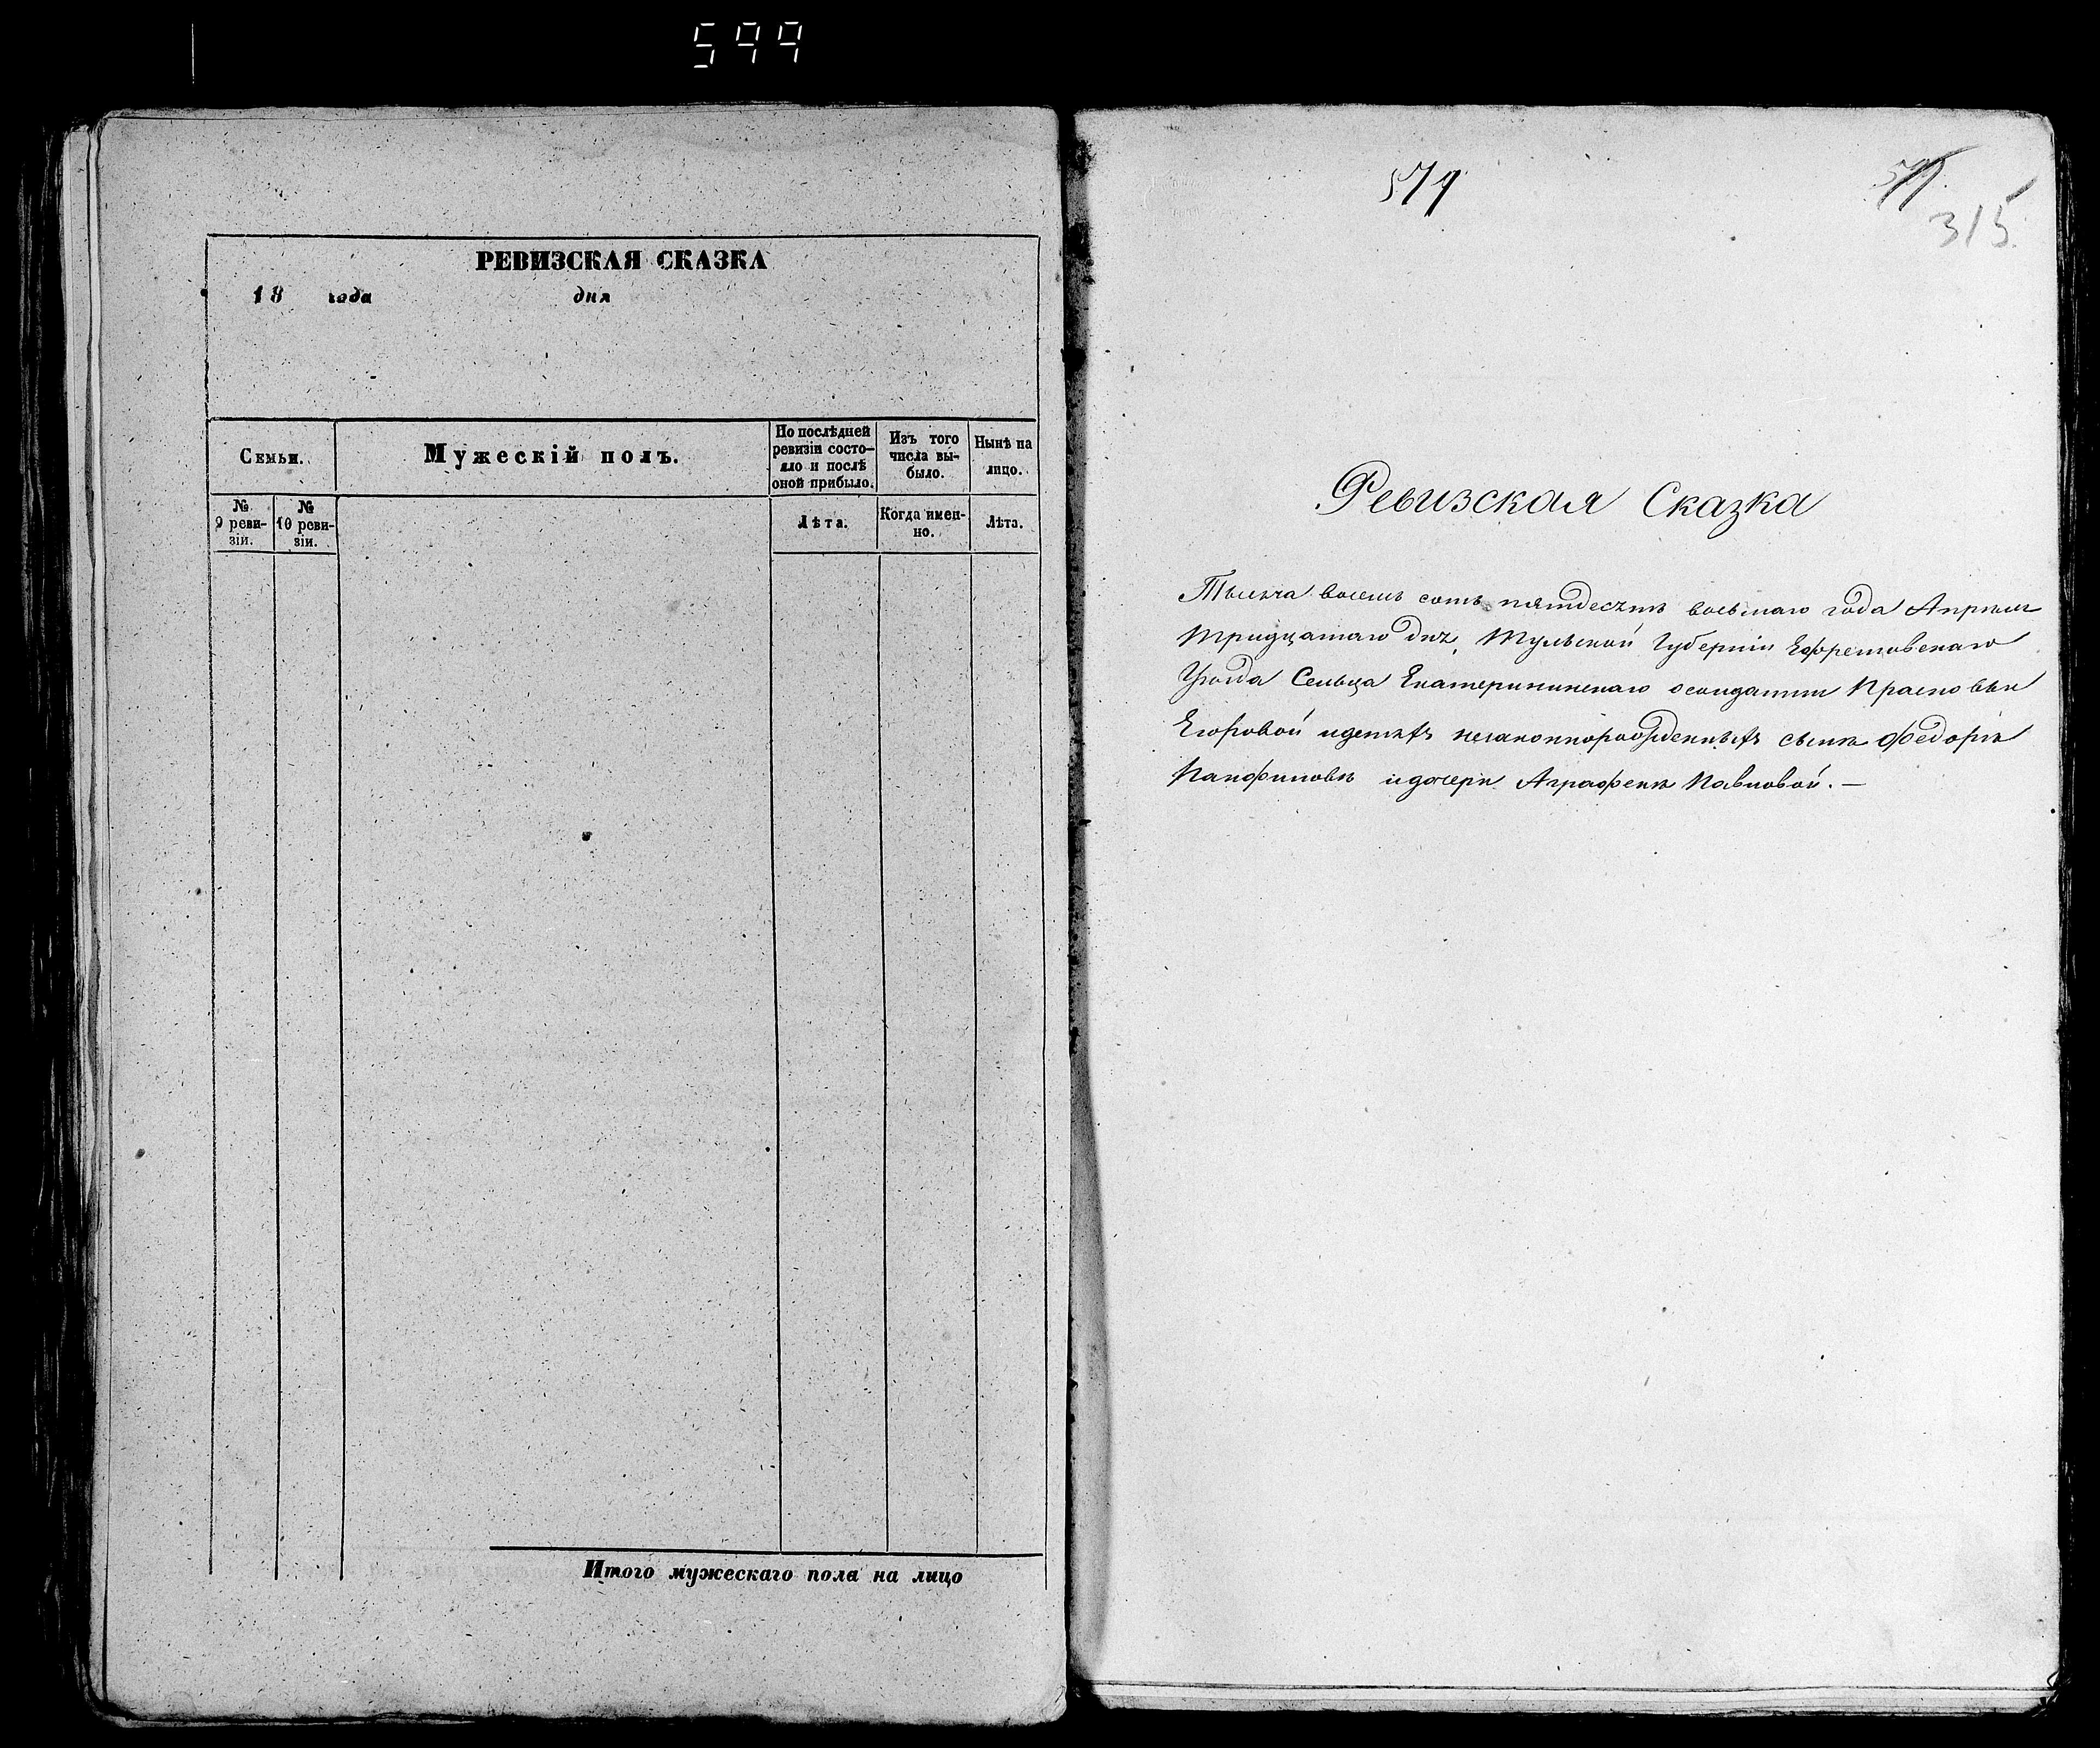 599
РЕВИЗСКАЯ СКАЗКА
18 года дня
Семьи.
Мужескiй полъ.
По послѣдней
ревизiи состо-
яло и послѣ
оной прибыло.
Изъ того
числа вы-
было.
Нынѣ на
лицо.
№
9 реви-
зiи.
№
10 реви-
зiи.
Лѣта.
Когда имен-
но.
Лѣта.
Итого мужескаго пола на лицо
579
315
Ревизская Сказка
Тысяча восемь сотъ пятдесятъ восьмаго года Апрѣля
тридцатаго дня, Тульской Губернiи Ефремовскаго
Уѣзда Сельца Екатерининскаго о солдатки Прасковьи
Егоровой идетяхъ незаконнорожденныхъ сынѣ Федорѣ
Панфиловѣ идочери Аграфенѣ Павловой. —